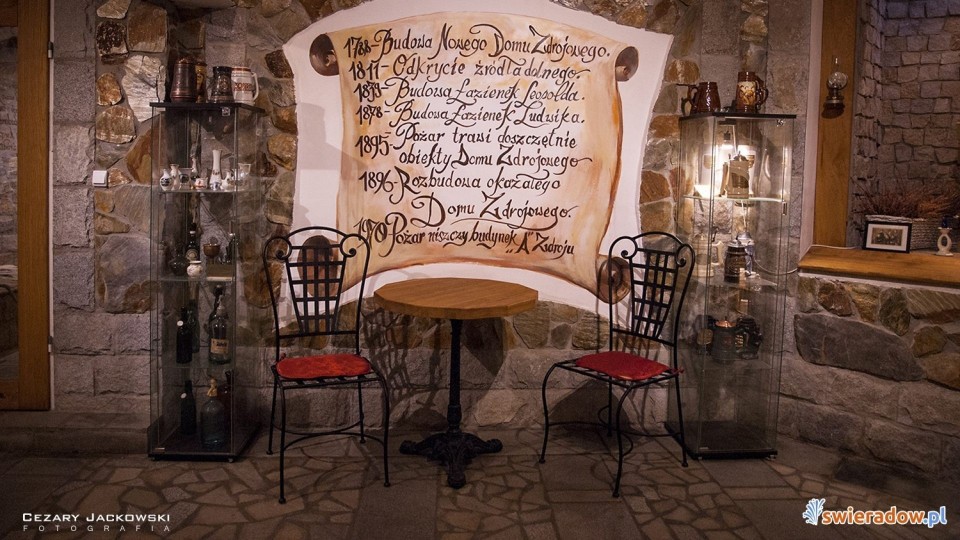 1788-Budowa Nowego Domu Zdrojowego.
1811-Odkrycie źródła dolnego.
1839-Budowa Łazienek Leopolda.
1878-Budowa Łazienek Ludwika.
1895-Pożar trawi doszczętnie
obiekty Domu Zdrojowego
1896-Rozbudowa okazałego
Domu Zdrojowego.
1970 Pożar niszczy budynek „A" Zdroju
CEZARY JACKOWSKI
FOTOGRAFIA
swieradow.pl